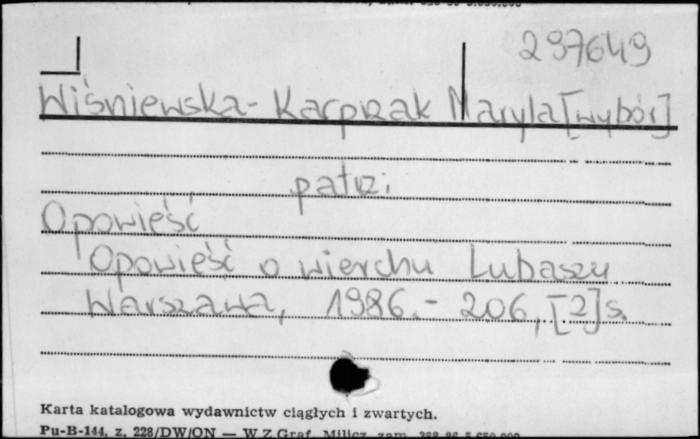 297649
Wiśniewska-Karprak Maryla [wybór]
patrz:
Opowieść
Opowieść o wierchu Lubaszu
Warszawa, 1986.- 206, [2] s.
Karta katalogowa wydawnictw ciągłych i zwartych.
Pu-B-144, z. 228/DW/ON — W.Z.Graf. Milicz, zam.